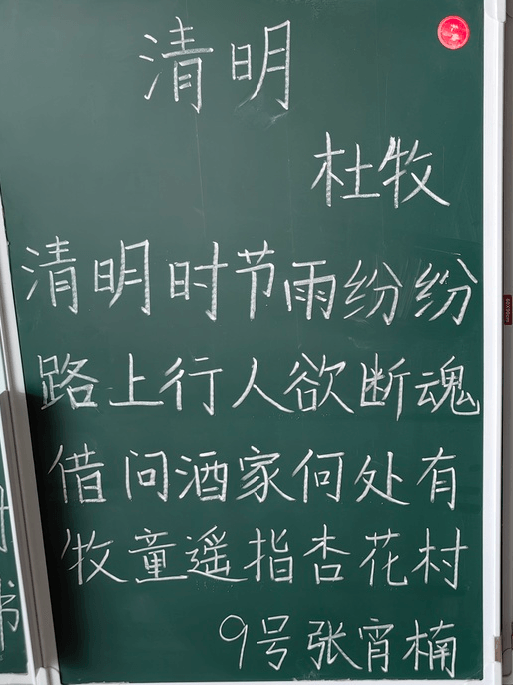 清明
杜牧
清明时节雨纷纷
路上行人欲断魂
借问酒家何处有
牧童遥指杏花村
9号张宵楠